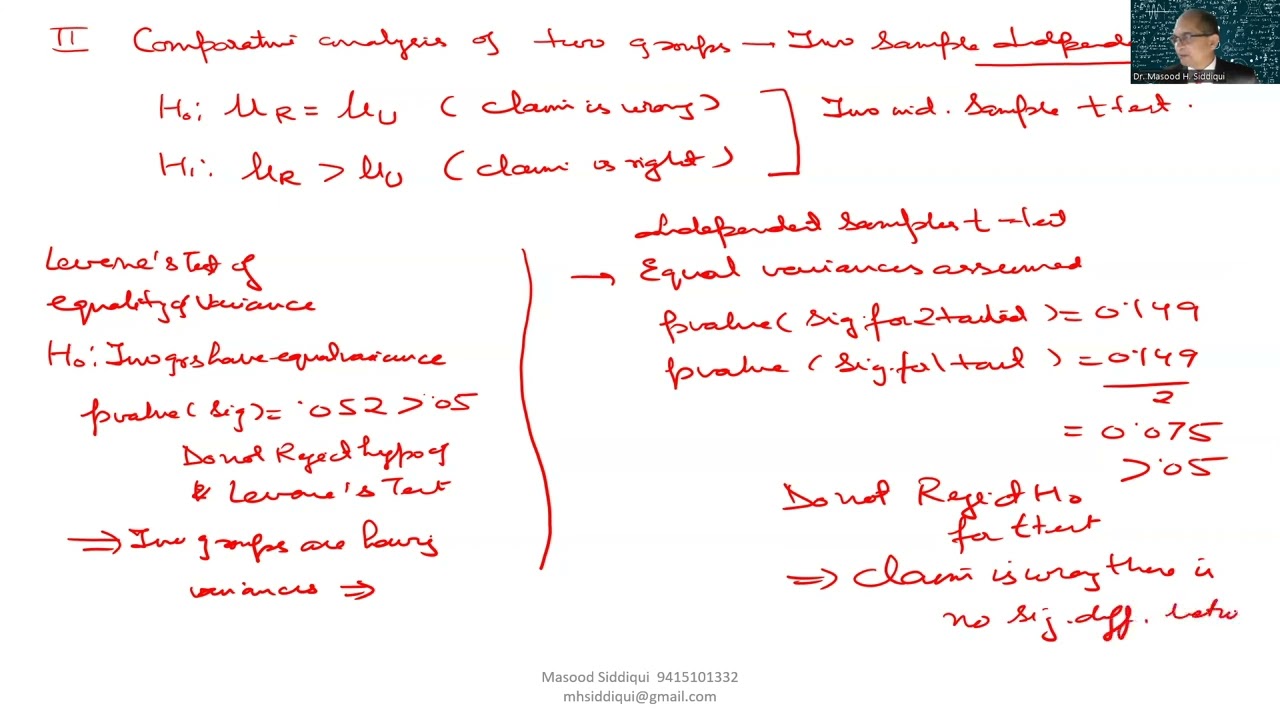 II Comparative analysis of two groups — Two Sample Independe
Dr. Masood H. Siddiqui
H₀: μR = μU ( claim is wrong )
H₁: μR > μU ( claim is right )
Two ind. Sample t test.
Levene's Test of
equality of Variance
H₀: Two grs have equal variance
pvalue ( sig ) = .052 > .05
Do not Reject hypo of
Levene's Test
⇒ Two groups are having
variances ⇒
Independent Samples t-test
→ Equal variances assumed
pvalue ( sig. for 2 tailed ) = 0.149
pvalue ( sig. for 1 tail ) = 0.149
2
= 0.075
> .05
Do not Reject H₀
for t test
⇒ Claim is wrong there is
no sig. diff. betw
Masood Siddiqui 9415101332
mhsiddiqui@gmail.com